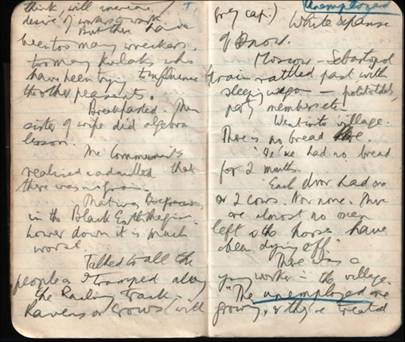 think, will overcome
desire of work, work.
But there have
been too many wreckers,
too many kulaks who
have been trying to influence
the other peasants.
Breakfasted. The
sister of wife did algebra
lesson.
The Communists
realised & admitted that
there was no grain.
That was
in the Black Earth Region
Lower down it is much
worst.
Talked to all the
people as I tramped along
the Railway Track.
Ravens or Crows, will
grey cap.)
Unemployed
White expanse
of snow.
Moscow - Sebastopol
train rattled past with
sleeping wagon - politotdels,
party members etc.
Went into village.
There is no bread here.
"We've had no bread
for 2 months.
Each door had one
or 2 cows. Now none. There
are almost no oxen
left & the horses have
been dying off."
There was a
young worker in the village.
"The unemployed are
growing, & they're treated